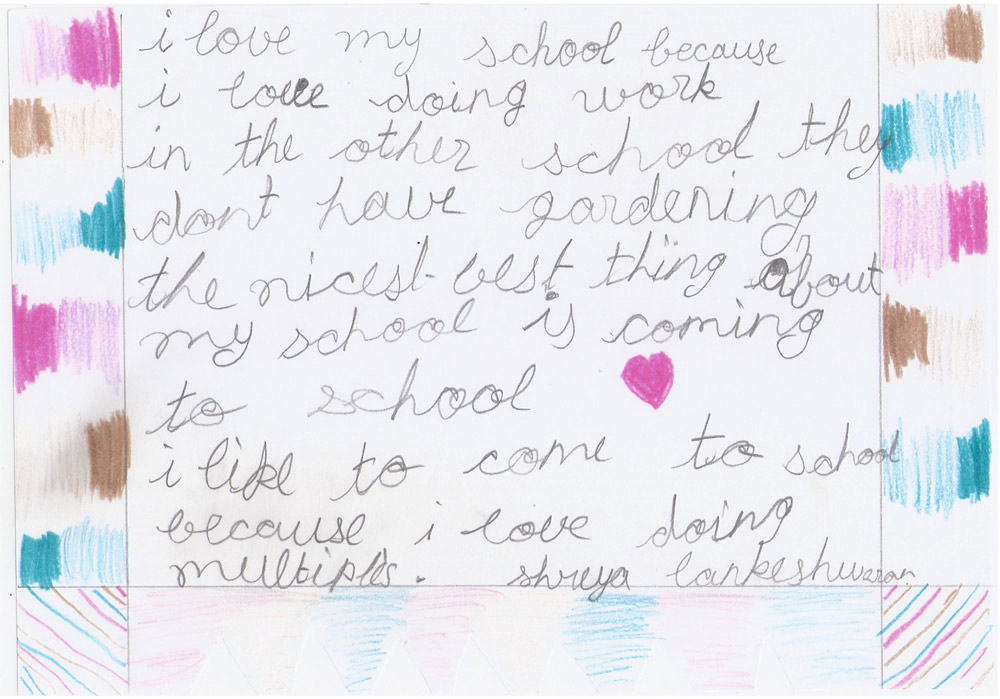 i love my school because
i love doing work
in the other school they
dont have gardening
the nicest best thing about
my school is coming
to school
i like to come to school
because i love doing
multiples. shreya lankeshwaran